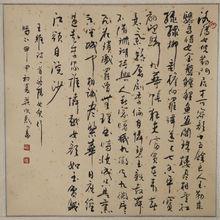 洛陽女兒對門居才可容顏十五餘良人玉勒乘
驄馬侍女金盤膾鯉魚畫閣朱樓盡相望紅桃
綠柳垂簷向羅幃送上七香車寶扇迎歸九
華帳狂夫富貴在青春
意氣驕奢劇季倫自憐碧玉親教舞
不惜珊瑚持與人春窗曙滅九微火九微片
片飛花戲罷曾無理曲時妝成祇是熏香
坐城中相識盡繁華日夜經過
趙李家誰憐越女顏如玉貧賤
江頭自浣沙
王維詩洛陽女兒行